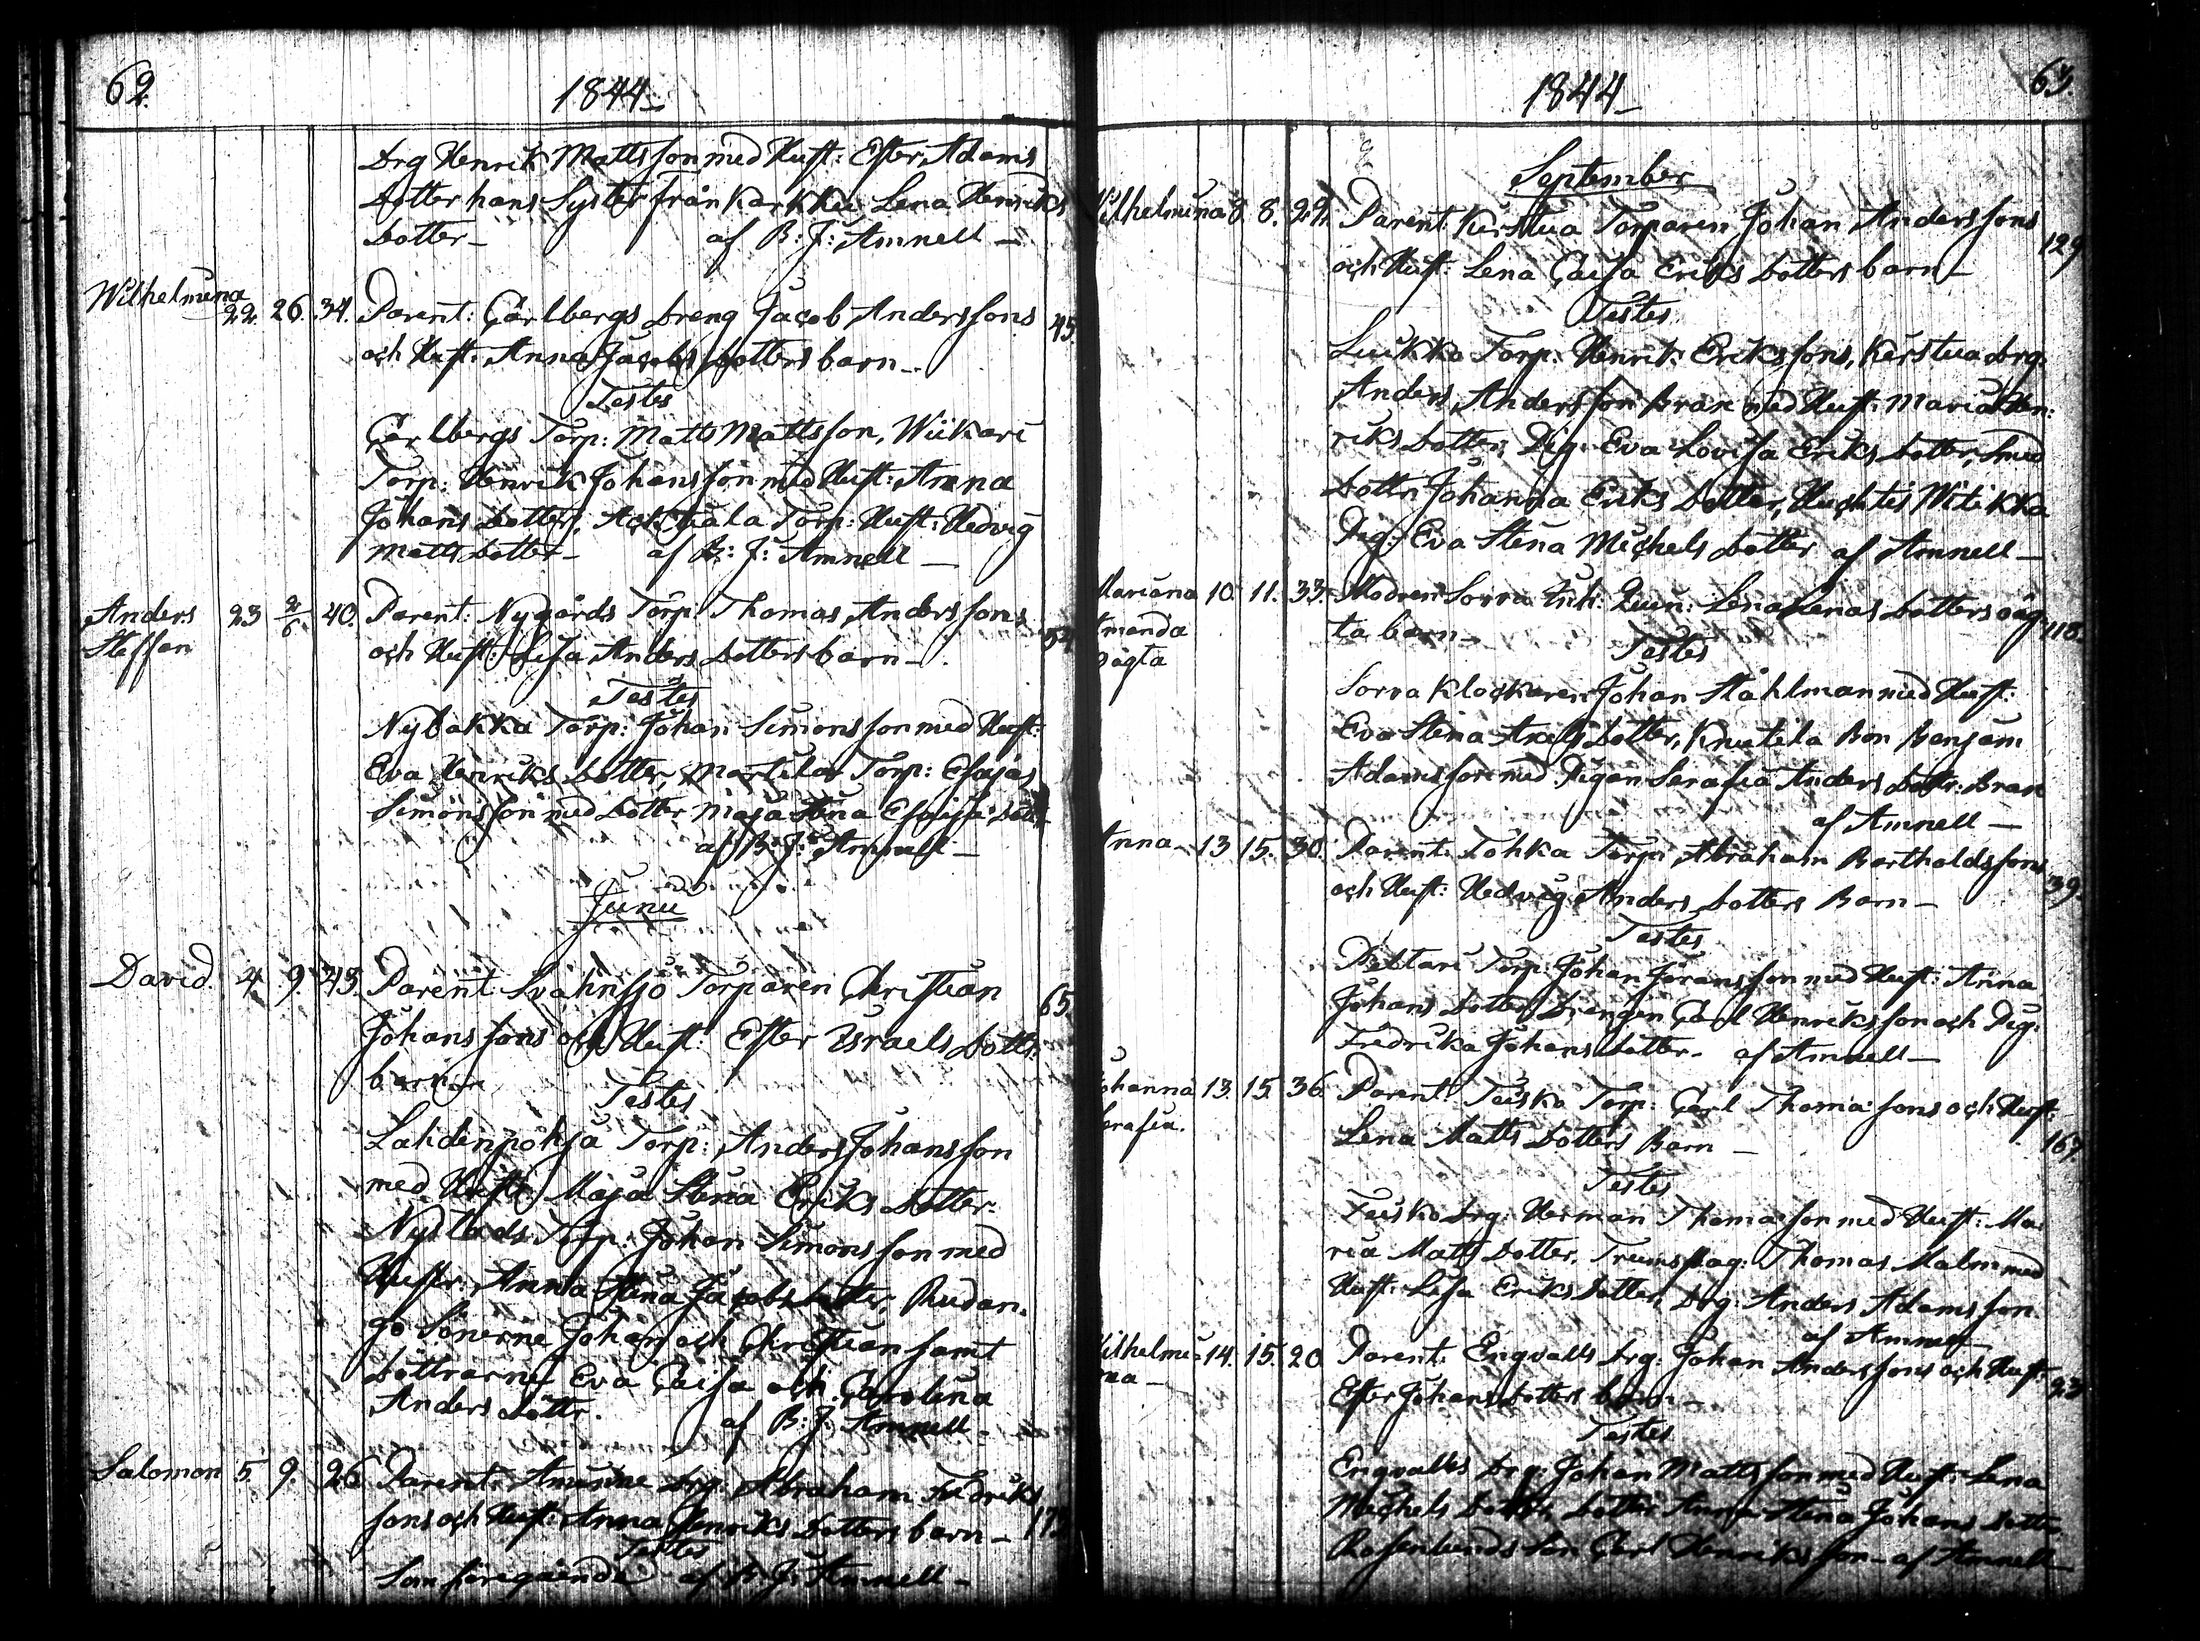 62.
1844
Drg Henrik Mattsson med Hust: Ester Adams
Dotter hans Syster från Karkku Lena Henriks
dotter af B: J: Amnell
Wilhelmina 22. 26. 34. Parent: Carlbergs Dreng Jacob Anderssons 45
och Hust: Anna Jacobs Dotters barn
Testes
Carlbergs Torp: Matts Mattsson, Wiikari
Torp: Henrik Johansson med Hust: Anna
Johans Dotter, Torp: Hust: Hedvig
Matts dotter af B: J: Amnell
Anders 23 2/6 40. Parent: Nygårds Torp: Thomas Anderssons
Steffan och Hust: Lisa Anders Dotters barn
Testes
Nybakka Torp: Johan Simonsson med Hust:
Eva Henriks Dotter, Martila Torp: Esajas
Simonsson med Dotter Maja Stina Esaias
af B: J: Amnell
Junii
David 4. 9. 43. Parent Svahnsjö Torparen Christian 65
Johanssons och Hust: Ester Israels Dotters
barn
Testes
Lahdenpohja Torp: Anders Johansson
med Hustr: Maja Stina Eriks Dotter
Torp: Johan Simonsson med
Hustr: Anna Stina Jacobs dotter, Rudan
jo Sönerne Johan och Christian samt
döttrarne Eva Caisa och Carolina
Anders döttr. af B: J: Amnell
Salomon 5. 9. 26 Parent: Drg Abraham Fredriks
sons och Hust: Anna Henriks Dotters barn
Testes
Som föregående af B: J: Amnell
63
1844
September
Wilhelmina 8. 8. 29. Parent: Kirstua Torparen Johan Anderssons 129
och Hust: Lena Caisa Eriks Dotters barn
Testes
Luukka Torp: Henrik Erikssons, Kirstua drg:
Anders Andersson Bran med Hust: Maria Hen:
riks dotter, Pig: Eva Lovisa Eriks dotter, Smed
dottr Johanna Eriks dotter, Huhtis Witikka
Pig: Eva Stina Michels dotter af Amnell
Mariana 10. 11. 33. Modren Sorra Inh: Qvin: Lena Lenas Dotters oäg 118.
Amanda ta barn
oägta Testes
Sorra Klockaren Johan Ståhlman med Hust:
Eva Stina Axels dotter, Knutila Bon Benjam
Adamsson med Pigan Serafia Anders dottr: Bran
af Amnell
Anna 13 15. 30. Parent: Tohka Torp: Abraham Bertholdssons 39.
och Hust: Hedvig Anders Dotters Barn
Testes
Pättari Torp: Johan Göransson med Hust: Anna
Johans Dotter, Drengen Carl Henriksson och Pig:
Fredrika Johans dotter af Amnell
Johanna 13. 15. 36. Parent: Teisko Torp: Carl Thomassons och Hust: 167
Serafia. Lena Matts Dotters Barn
Testes
Teisko Drg: Herman Thomasson med Hust: Ma
ria Matts Dotter, Trumslag: Thomas Malm med
Hust: Lisa Eriks Dotter, Drg: Anders Adamsson
af Amnell
Wilhelmi 14. 15. 20. Parent: Engvalls Drg: Johan Anderssons och Hust: 23
na Ester Johans Dotters barn
Testes
Engvalls Drg: Johan Mattsson med Hust: Lena
Michels Dotter, dotter Anna Stina Johans dotter,
Rosenlunds Son Carl Henriksson af Amnell